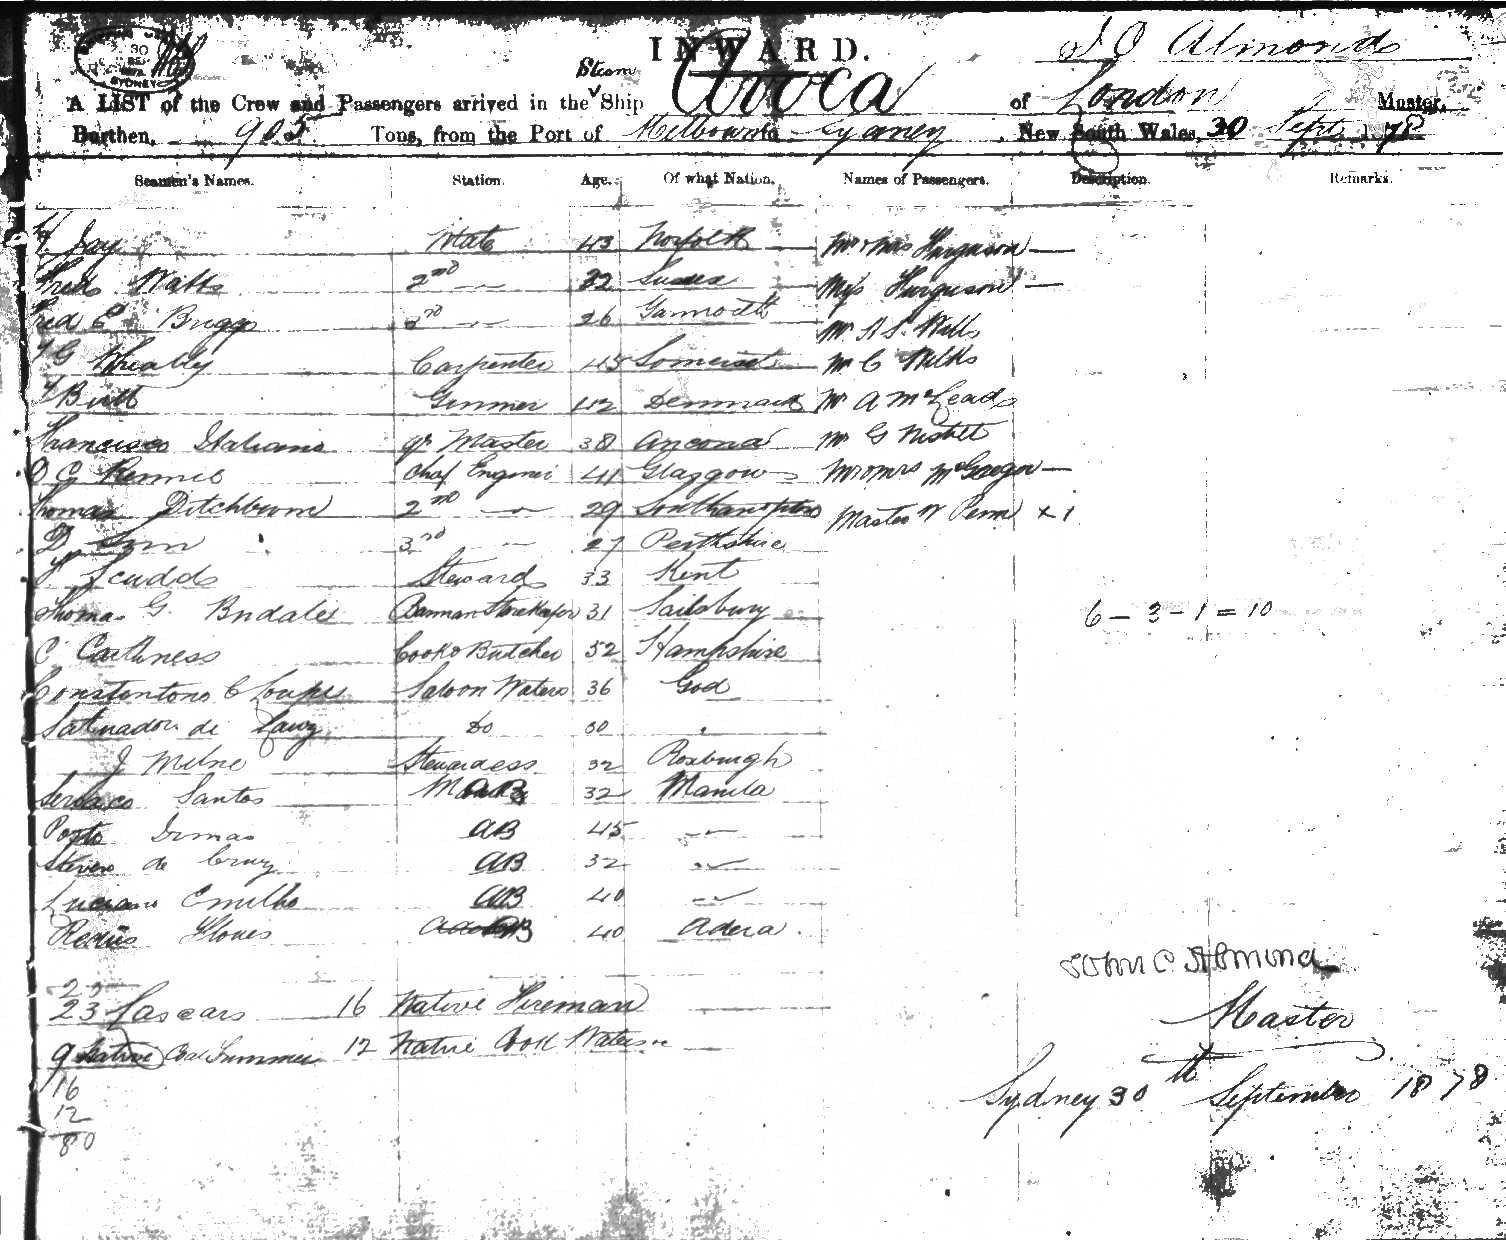 INWARD.
J O Almond
A LIST of the Crew and Passengers arrived in the Steam Ship Avoca of London Muster,
Burthen, 905 Tons, from the Port of Melbourne Sydney, New South Wales, 30 Sept 1878
Seamen's Names. Station. Age. Of what Nation. Names of Passengers. Description. Remarks.
Jay Mate 43 Norfolk Mr & Mrs Ferguson
Fred Watts 2nd 32 Sussex Miss Ferguson
Fred E Briggs 3rd 26 Yarmouth Mr Wills
Wheably Carpenter 45 Somerset Mr C Wilks
Butt Gunner 42 Denmark Mr A McLeod
Francisco Italiano qr Master 38 Ancona Mr G Nisbett
D C Rennie Chief Engineer 41 Glasgow Mr & Mrs McGregor
Thomas Ditchburn 2nd 29 Southampton Master W Penn x 1
D 3rd 27 Perthshire
Scudds Steward 33 Kent
Thomas G. Barman Storekeeper 31 Sailsbury 6 - 3 - 1 = 10
C Caithness Cook & Butcher 52 Hampshire
C Saloon Waters 36 God
Salvador de Do 30
J Milne Stewardess 32 Roxburgh
Santos AB 32 Manila
AB 45
Steven de Cruz AB 32
Luciano Emilho AB 40
AB 40 Adera.
John C Almond
23 Lascars 16 Native Fireman
Master
9 Native Coal 12 Native Cook Waters
Sydney 30th September 1878
16
12
80